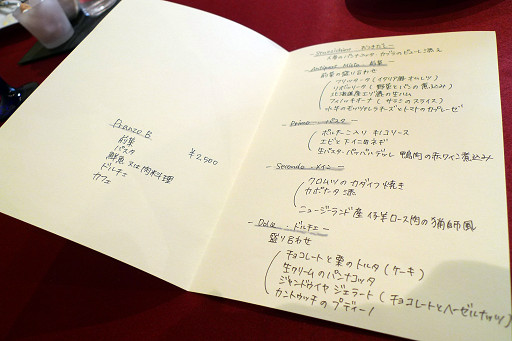 Pranzo B
前菜
パスタ
鮮魚 又は 肉料理
ドルチェ
カフェ
¥2,500
Stuzzichino おつきだし
Antipasti Misto 前菜
前菜の盛り合わせ
フリッタータ (イタリア風オムレツ)
リボッリータ (野菜とパンの煮込み)
北海道産エゾ鹿の生ハム
フィノッキオーナ (サラミのスライス)
水牛のモッツァレラチーズとトマトのカプレーゼ
Primo パスタ
ポルチーニ入り キノコソース
エビと下仁田ネギ
生パスタ・パッパルデッレ 鴨肉の赤ワイン煮込み
Secondo メイン
クロムツのカダイフ焼き
カポナータ添
ニュージーランド産 仔羊ロース肉の猟師風
Dolce ドルチェ
盛り合わせ
チョコレートと栗のトルタ (ケーキ)
生クリームのパンナコッタ
ジャンドゥイヤ ジェラート (チョコレートとヘーゼルナッツ)
カントゥッチのブディーノ